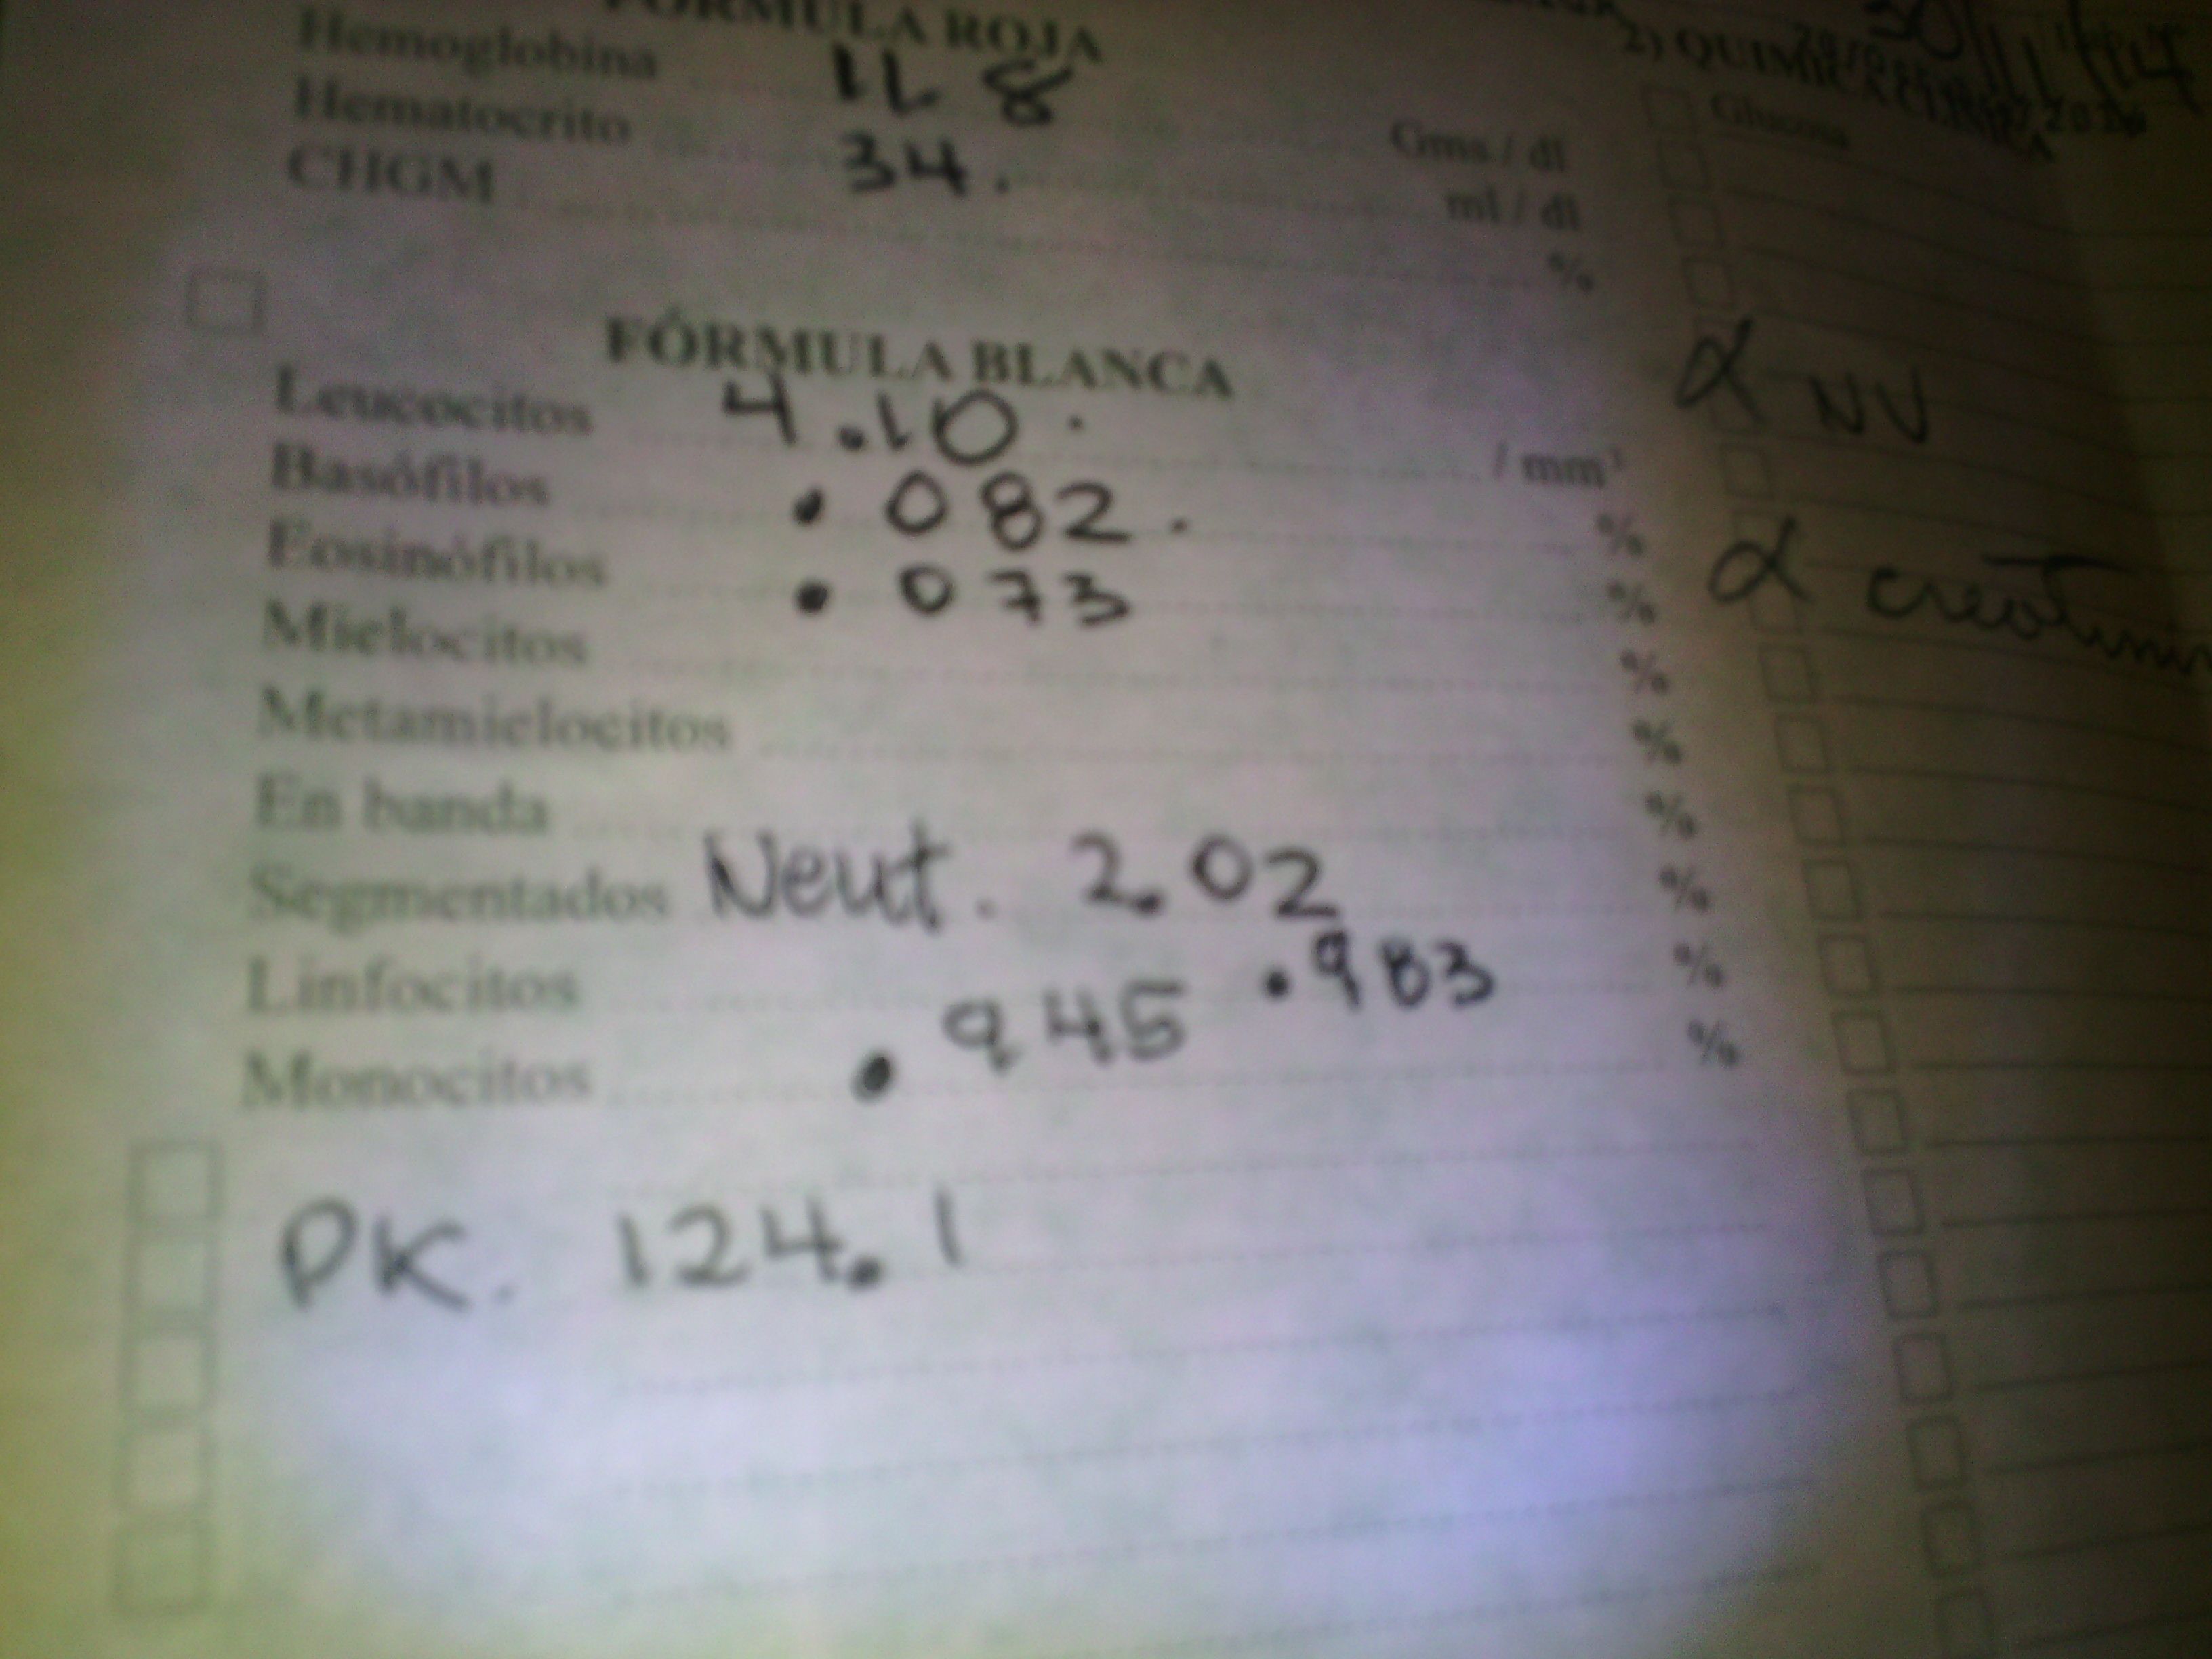 FÓRMULA ROJA
Hemoglobina 11.8 Gms / dl
Hematocrito 34. ml / dl
CHGM %
FÓRMULA BLANCA
Leucocitos 4.10. / mm³
Basófilos .082. %
Eosinófilos .073 %
Mielocitos %
Metamielocitos %
En banda %
Segmentados Neut. 2.02 %
Linfocitos .983 %
Monocitos .945 %
PK. 124.1
30/11/14
2) QUIMICA CLINICA
Glucosa
NV